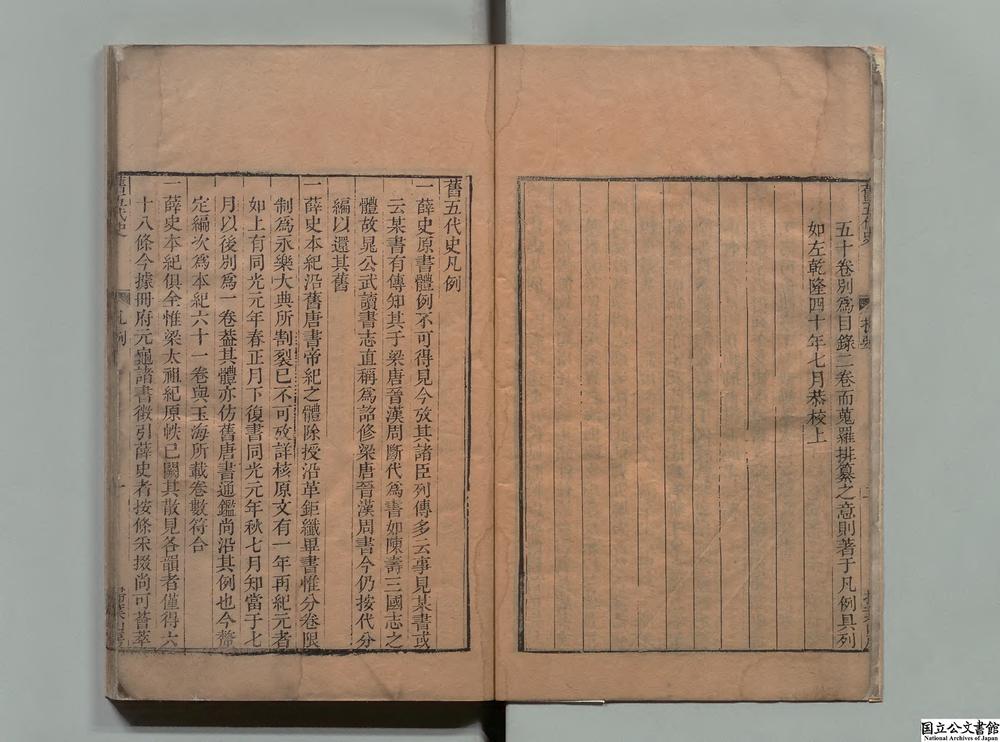 五十卷別爲目錄二卷而蒐羅排纂之意則著于凡例具列
如左乾隆四十年七月恭校上
舊五代史凡例
一薛史原書體例不可得見今攷其諸臣列傳多云事見某書或
云某書有傳知其于梁唐晉漢周斷代爲書如陳壽三國志之
體故晁公武讀書志直稱爲詔修梁唐晉漢周書今仍按代分
編以還其舊
一薛史本紀沿舊唐書帝紀之體除授沿革鉅纖畢書惟分卷限
制爲永樂大典所割裂已不可攷詳核原文有一年再紀元者
如上有同光元年春正月下復書同光元年秋七月知當于七
月以後別爲一卷蓋其體亦仿舊唐書通鑑尚沿其例也今釐
定編次爲本紀六十一卷與玉海所載卷數符合
一薛史本紀俱全惟梁太祖紀原帙已闕其散見各韻者僅得六
十八條今據冊府元龜諸書徵引薛史者按條采掇尚可薈萃
舊五代史
凡例
一
国立公文書館
National Archives of Japan